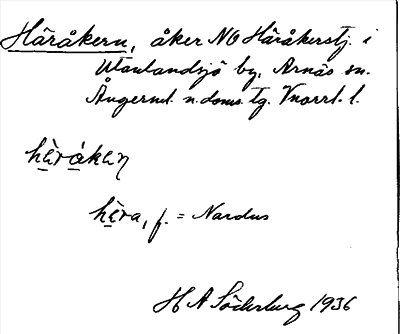 Häråkern, åker NO Häråkerstj. i
Utanlandsjö by, Arnäs sn.
Ångerml. n. doms. tg. Vnorrl. l.
hèråken
hèra, f. = Nardus
H A Söderburg 1936